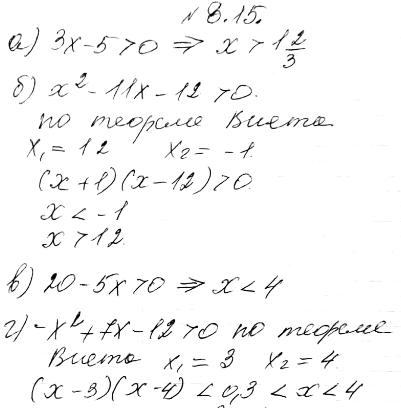 № 8.15.
а) 3x-5>0 ⇒ x > 1 2/3
б) x² - 11x - 12 > 0.
по теореме Виета
x₁ = 12 x₂ = -1.
(x+1)(x-12)>0
x < -1
x > 12.
в) 20-5x>0 ⇒ x<4
г) -x²+7x-12>0 по теореме
Виета x₁ = 3 x₂ = 4.
(x-3)(x-4) < 0, 3 < x < 4